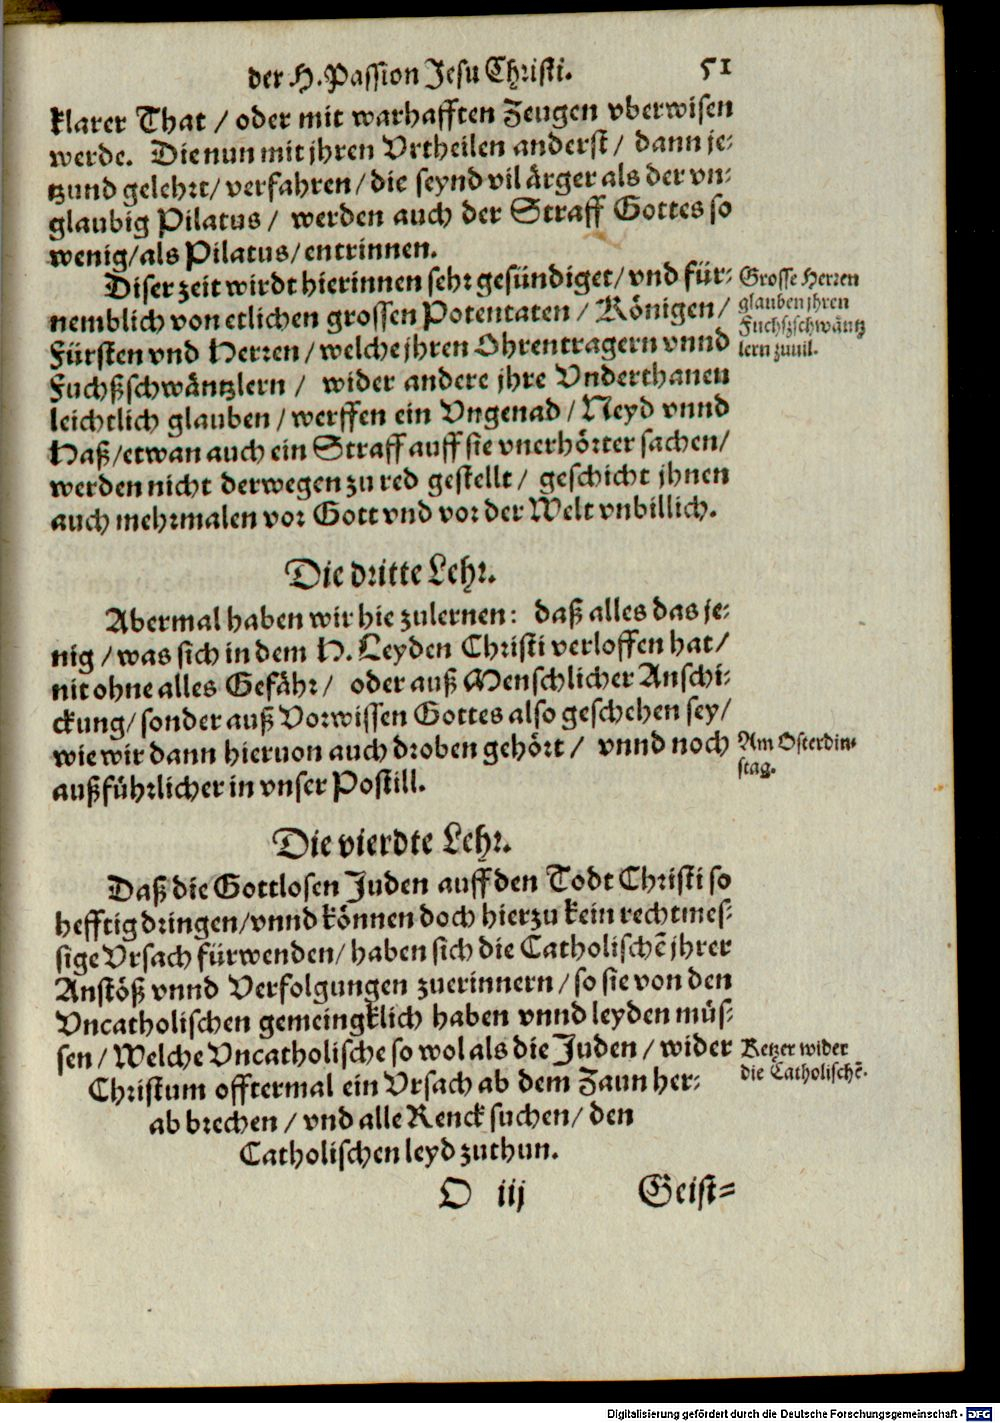 der H. Passion Jesu Christi. 51
klarer That / oder mit warhafften Zeugen vberwisen
werde. Die nun mit jhren Vrtheilen anderst / dann je-
tzund gelehrt / verfahren / die seynd vil ärger als der vn-
glaubig Pilatus / werden auch der Straff Gottes so
wenig / als Pilatus / entrinnen.
Diser zeit wirdt hierinnen sehr gesündiget / vnd für-
nemblich von etlichen grossen Potentaten / Königen /
Fürsten vnd Herren / welche jhren Ohrentragern vnnd
Fuchßschwäntzlern / wider andere jhre Vnderthanen
leichtlich glauben / werffen ein Vngenad / Neyd vnnd
Haß / etwan auch ein Straff auff sie vnerhörter sachen /
werden nicht derwegen zu red gestellt / geschicht jhnen
auch mehrmalen vor Gott vnd vor der Welt vnbillich.
Grosse Herren
glauben jhren
Fuchßschwäntz
lern zuuil.
Die dritte Lehr.
Abermal haben wir hie zulernen: daß alles das je-
nig / was sich in dem H. Leyden Christi verloffen hat /
nit ohne alles Gefähr / oder auß Menschlicher Anschi-
ckung / sonder auß Vorwissen Gottes also geschehen sey /
wie wir dann hieruon auch droben gehört / vnnd noch
außführlicher in vnser Postill.
Am Osterdin-
stag.
Die vierdte Lehr.
Daß die Gottlosen Juden auff den Todt Christi so
hefftig dringen / vnnd können doch hierzu kein rechtmes-
sige Vrsach fürwenden / haben sich die Catholischẽ jhrer
Anstöß vnnd Verfolgungen zuerinnern / so sie von den
Vncatholischen gemeingklich haben vnnd leyden müs-
sen / Welche Vncatholische so wol als die Juden / wider
Christum offtermal ein Vrsach ab dem Zaun her-
ab brechen / vnd alle Renck suchen / den
Catholischen leyd zuthun.
Ketzer wider
die Catholischẽ.
O iij Geist-
Digitalisierung gefördert durch die Deutsche Forschungsgemeinschaft - DFG